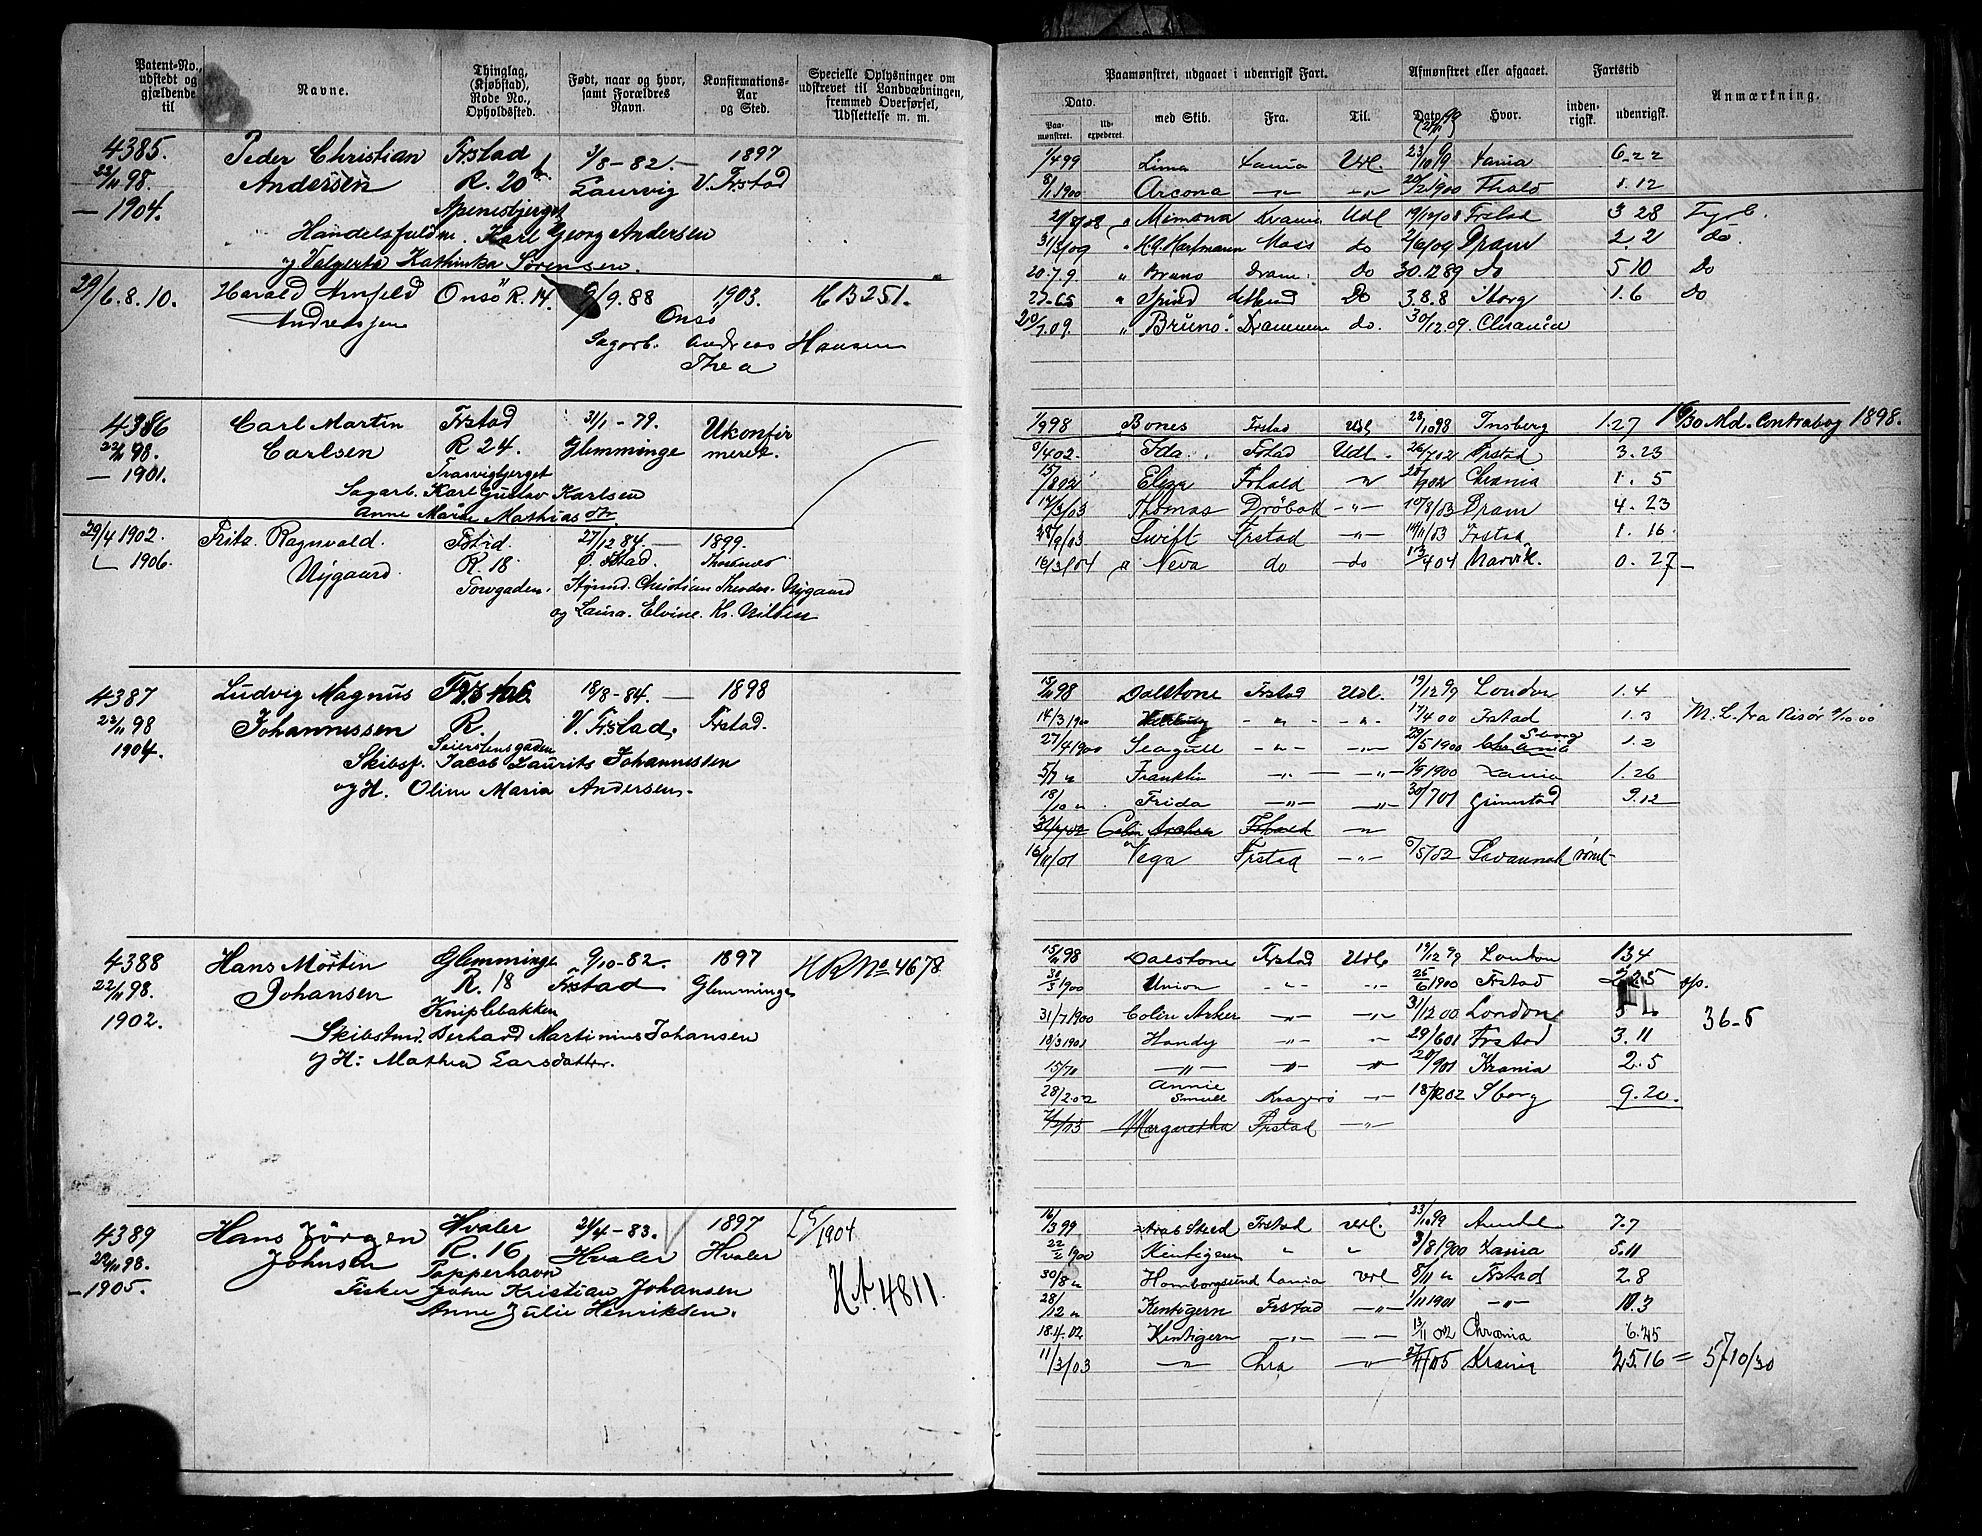 Patent-No., udstedt og gjældende til
Navne.
Thinglag, (Kjøbstad), Rode No., Opholdssted.
Født, naar og hvor, samt Forældres Navn.
Konfirmations-Aar og Sted.
Specielle Oplysninger om udskrevet til Landvæbningen, fremmed Overførsel, Udslettelse m. m.
4385. Peder Christian Frstad 3/8-82. — 1897
22/11 98. Andersen R. 20 Laurvig V. Frstad
— 1904. Apenesbjerget
Handelsfuldm. Karl Georg Andersen
og Valgerta Kathinka Sörensen.
29/6. 8. 10. Harald Arnfeld Onsö R. 14. 9/9. 88 1903. H B 251.
Andreassen Onsö
Sagarb. Andreas Hansen
Thea
4386 Carl Martin Frstad 31/1-79. Ukonfir
22/11 98. Carlsen R 24. Glemminge meret.
— 1901. Trasvigbjerget
Sagarb. Karl Gustav Karlsen
Anne Marie Mathias dtr.
29/4 1902. Fritz Ragnvald Fstd. 27/12 84. — 1899.
1906. Nygaard R. 18 Ø. Fstad.
Torvgaden. Styrmd. Christian Theodor Nygaard
og Laura Elvine Kr. Nilsen
4387 Ludvig Magnus Frstad 18/8-84. — 1898
22/11 98 Johannessen R. V. Frstad. Frstad.
1904. Seierstensgaden
Skibsf. Jacob Laurits Johannessen
og H. Oline Maria Andersen.
4388 Hans Mortin Glemminge 9/10-82. 1897 HR No 4678
22/11 98. Johansen R. 18 Frstad Glemminge
1902. Kniplebakken
Skibstmd. Berhard Martinius Johansen
og H: Mathea Larsdatter.
4389 Hans Jörgen Hvaler 21/4-83. 1897 5/1904
Johnsen R. 16 Hvaler Hvaler
— 1905. Papperhavn
Fisker John Kristian Johansen
Anne Julie Henriksen. H. A. 4811.
Paamønstret, udgaaet i udenrigsk Fart.
Afmønstret eller afgaaet.
Fartstid
Anmærkning.
Dato. Paamønstret. Udexpederet. med Skib. Fra. Til. Dato. Hvor. indenrigsk. udenrigsk.
1/4 99 Lima Xania Udl. Xania 6.22
8/1 1900 Arcona —„— —„— 20/2 1900 1.12
„ Mimona Dram Udl 19/12/08 Frstad 3 28 Fyrb.
31/3/09 „ H. A. Hartmann Moss do 2/6/09 Dram 2. 2 do.
20.7.9 „ Bruno Dram. Do 30.12.89 Do 5 10 Do
„ Spind Do 3.8.8 Sborg 1.6 Do
20/7.09. „ Bruno. Drammen do. 30/12.09. Chrania
1/9 98 Bones Frstad Udl 28/10 98 Tnsberg 1.27 Md. Contrabog 1898.
8/4 02. Ida. Fstad Udl. 26/7 02 Frstad 3. 23
15/8 02 Eliza Frhald 28/9 02 Chrania 1. 5
17/3/03 Thomas Dröbak —„— 10/8/03 Dram 4. 23
28/9/03 Swift Frstad —„— 14/11/03 Frstad 1. 16
16/3/04 „ Neva do —do 13/4 04 Narvik. 0. 27 —
15/11 98 Dalstone Frstad Udl. 19/12 99 London 1.4
14/3 1900 —„— —„— 17/4 00 Frstad 1. 3 M. L. fra Risør
27/4 1900 Seagull —„— —„— 29/5 1900 Sborg 1.2
5/7 „ Franklin —„— —„— 1/9 1900 Xania 1. 26
18/10 „ Frida —„— —„— 30/7 01 Grimstad 9.12
Frhald
16/11/01 Vega Frstad —„— 6/5/02 Savannah römt
15/11 98 Dalstone Frstad Udl 19/12 99 London 1 34
30/3 1900 Union —„— —„— 25/6 1900 Frstad
31/7 1900 Colin Arker —„— —„— 31/12 00 London 36-5
19/3 1901 Handy —„— —„— 29/6 01 Frstad 3. 11
15/7 01 —„— —„— —„— 20/9 01 Krania 2. 5
28/2.02 Annie Smull Kragerö —„— 18/12 02 Sborg 9. 20.
Margaretha Frstad —„—
16/3 99 Arab Steed Frstad Udl. 23/10 99 7.7
22/2 1900 Kentigern „ „ 3/8 1900 Xania 5.11
30/8 „ Homborgsund Xania Udl 8/11 „ Frstad 2 8
28/12 „ Kentigern Frstad —„— 1/11 1901 —„— 10.3
18.4.02 Kentigern —„— —„— 13/11 02 Chrania 6. 25
11/3/03 —„— Chra —„— 27/4/05 Krania 25.16 = 57 10/30